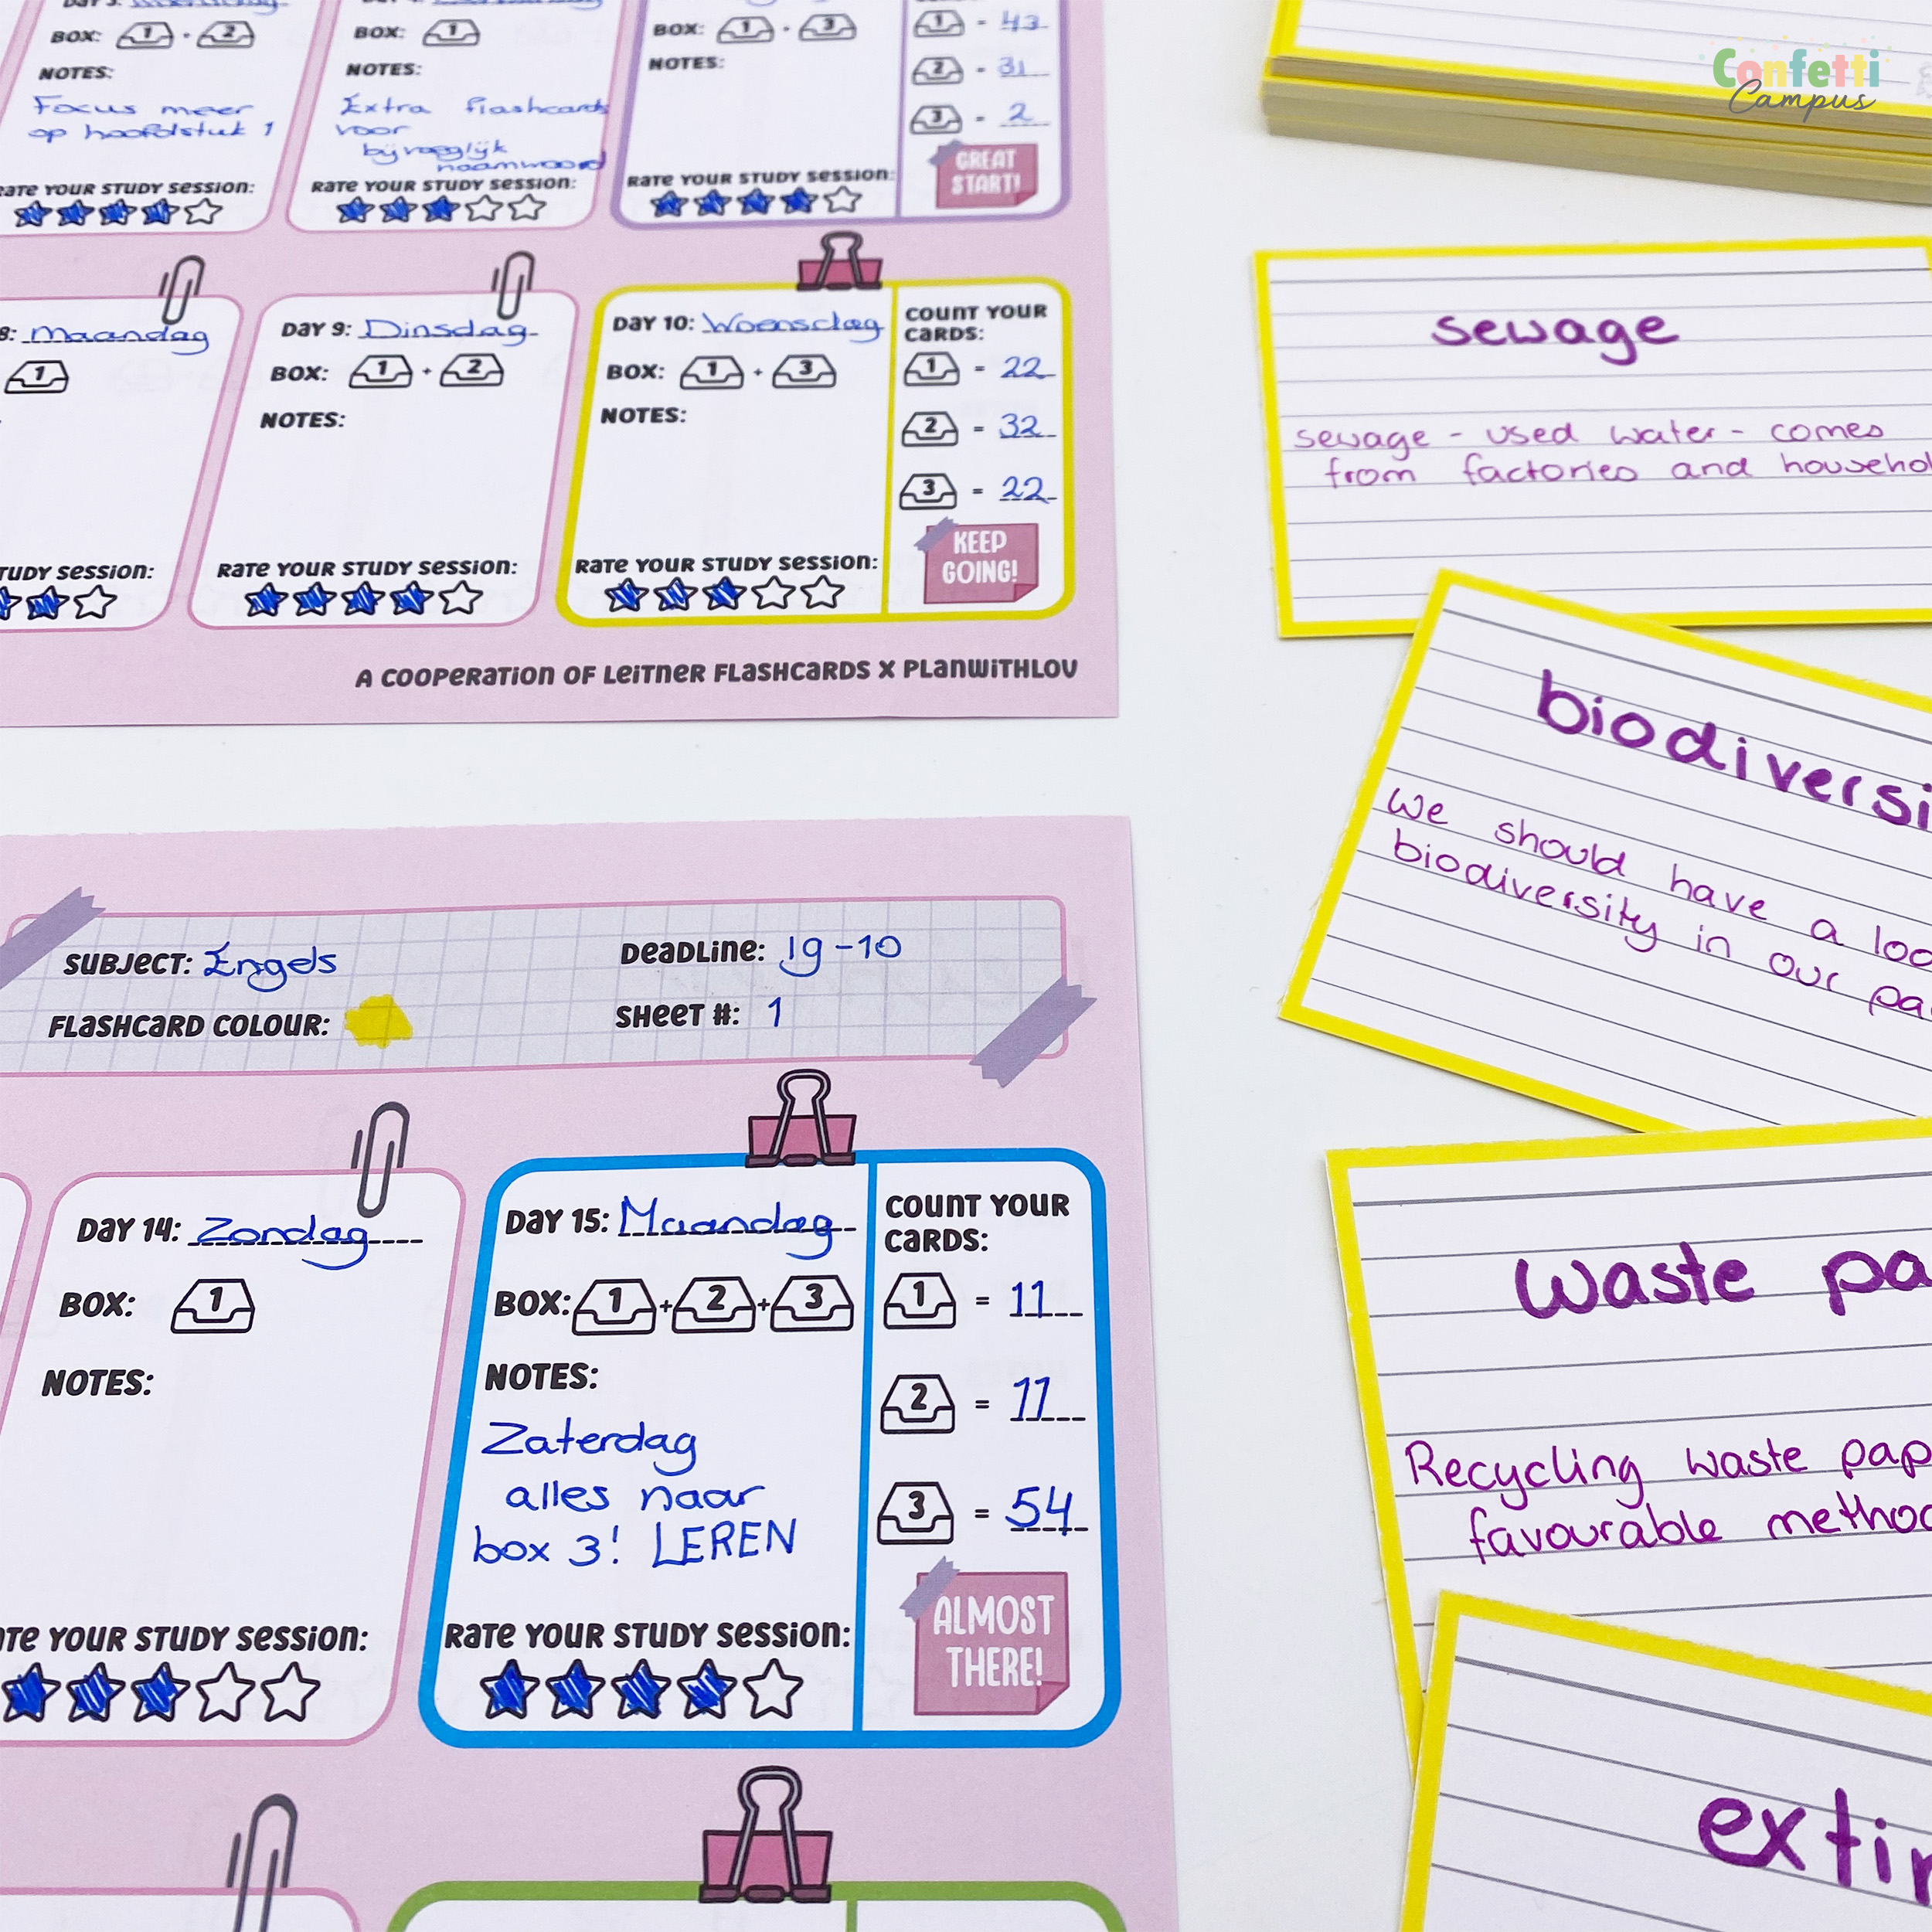 BOX: 1 + 2
NOTES:
Focus meer
op hoofdstuk 1
RATE YOUR STUDY SESSION:
BOX: 1
NOTES:
Extra flashcards
voor
bijvoeglijk
naamwoord
RATE YOUR STUDY SESSION:
BOX: 1 + 3
NOTES:
RATE YOUR STUDY SESSION:
1 = 43
2 = 31
3 = 2
GREAT
START!
8: Maandag
1
STUDY SESSION:
DAY 9: Dinsdag
BOX: 1 + 2
NOTES:
RATE YOUR STUDY SESSION:
DAY 10: Woensdag
BOX: 1 + 3
NOTES:
RATE YOUR STUDY SESSION:
COUNT YOUR
CARDS:
1 = 22
2 = 32
3 = 22
KEEP
GOING!
A COOPERATION OF LEITNER FLASHCARDS X PLANWITHLOV
SUBJECT: Engels
DEADLINE: 19-10
FLASHCARD COLOUR:
SHEET #: 1
DAY 14: Zondag
BOX: 1
NOTES:
RATE YOUR STUDY SESSION:
DAY 15: Maandag
BOX: 1 + 2 + 3
NOTES:
Zaterdag
alles naar
box 3! LEREN
RATE YOUR STUDY SESSION:
COUNT YOUR
CARDS:
1 = 11
2 = 11
3 = 54
ALMOST
THERE!
Confetti
Campus
sewage
sewage - used water - comes
from factories and househol
biodiversi
We should have a loo
biodiversity in our pa
waste pa
Recycling waste pap
favourable method
extin